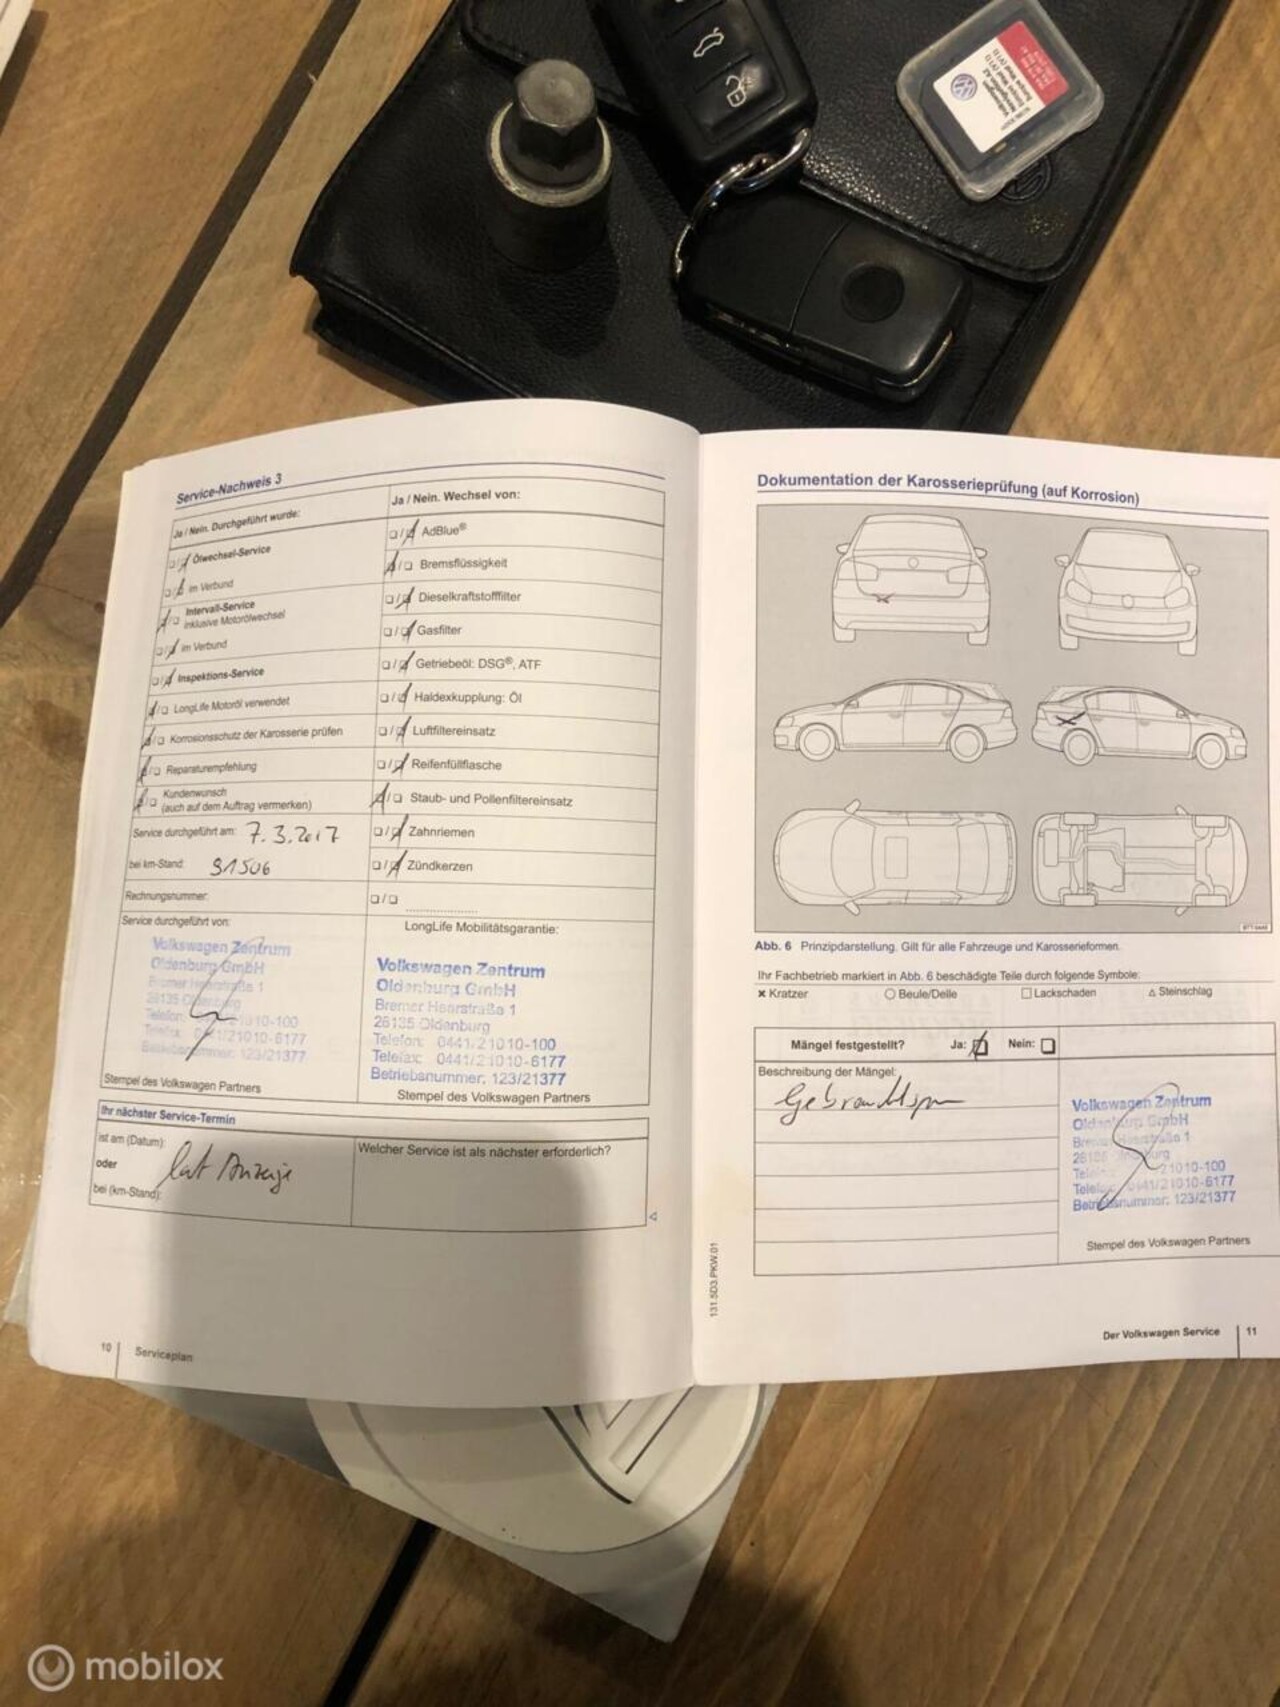 Service-Nachweis 3
Ja / Nein. Durchgeführt wurde:
Ölwechsel-Service
im Verbund
Intervall-Service
inklusive Motorölwechsel
im Verbund
Inspektions-Service
LongLife Motoröl verwendet
Korrosionsschutz der Karosserie prüfen
Reparaturempfehlung
Kundenwunsch
(auch auf dem Auftrag vermerken)
Service durchgeführt am: 7.3.2017
bei km-Stand: 91506
Rechnungsnummer:
Service durchgeführt von:
Volkswagen Zentrum
Oldenburg GmbH
Bremer Heerstraße 1
26135 Oldenburg
Telefon: 21010-100
Telefax: 0441/21010-6177
Betriebsnummer: 123/21377
Stempel des Volkswagen Partners
Ja / Nein. Wechsel von:
AdBlue®
Bremsflüssigkeit
Dieselkraftstofffilter
Gasfilter
Getriebeöl: DSG®, ATF
Haldexkupplung: Öl
Luftfiltereinsatz
Reifenfüllflasche
Staub- und Pollenfiltereinsatz
Zahnriemen
Zündkerzen
LongLife Mobilitätsgarantie:
Volkswagen Zentrum
Oldenburg GmbH
Bremer Heerstraße 1
26135 Oldenburg
Telefon: 0441/21010-100
Telefax: 0441/21010-6177
Betriebsnummer: 123/21377
Stempel des Volkswagen Partners
Ihr nächster Service-Termin
ist am (Datum):
oder
bei (km-Stand):
laut Anzeige
Welcher Service ist als nächster erforderlich?
10 Serviceplan
Dokumentation der Karosserieprüfung (auf Korrosion)
Abb. 6 Prinzipdarstellung. Gilt für alle Fahrzeuge und Karosserieformen.
Ihr Fachbetrieb markiert in Abb. 6 beschädigte Teile durch folgende Symbole:
× Kratzer ○ Beule/Delle □ Lackschaden △ Steinschlag
Mängel festgestellt? Ja: Nein:
Beschreibung der Mängel:
Volkswagen Zentrum
Oldenburg GmbH
Bremer Heerstraße 1
26135 Oldenburg
21010-100
Telefax: 0441/21010-6177
Betriebsnummer: 123/21377
Stempel des Volkswagen Partners
131.5D3.PKW.01
Der Volkswagen Service 11
mobilox